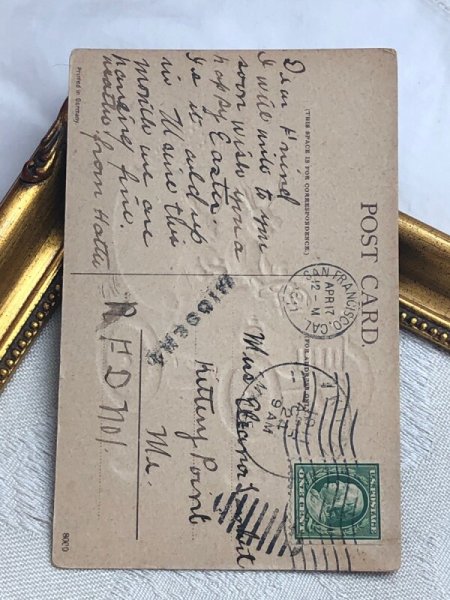 POST CARD.
(THIS SPACE IS FOR CORRESPONDENCE.)
Printed in Germany.
Dear Friend
I will write to you
soon wish you a
happy Easter.
Is it cold up
in Maine this
month we are
having fine
weather from Hattie
SAN FRANCISCO, CAL.
APR 17
12 - M
9 AM
U.S. POSTAGE
ONE CENT
Miss
Kittery Point
Me.
R F D No 1.